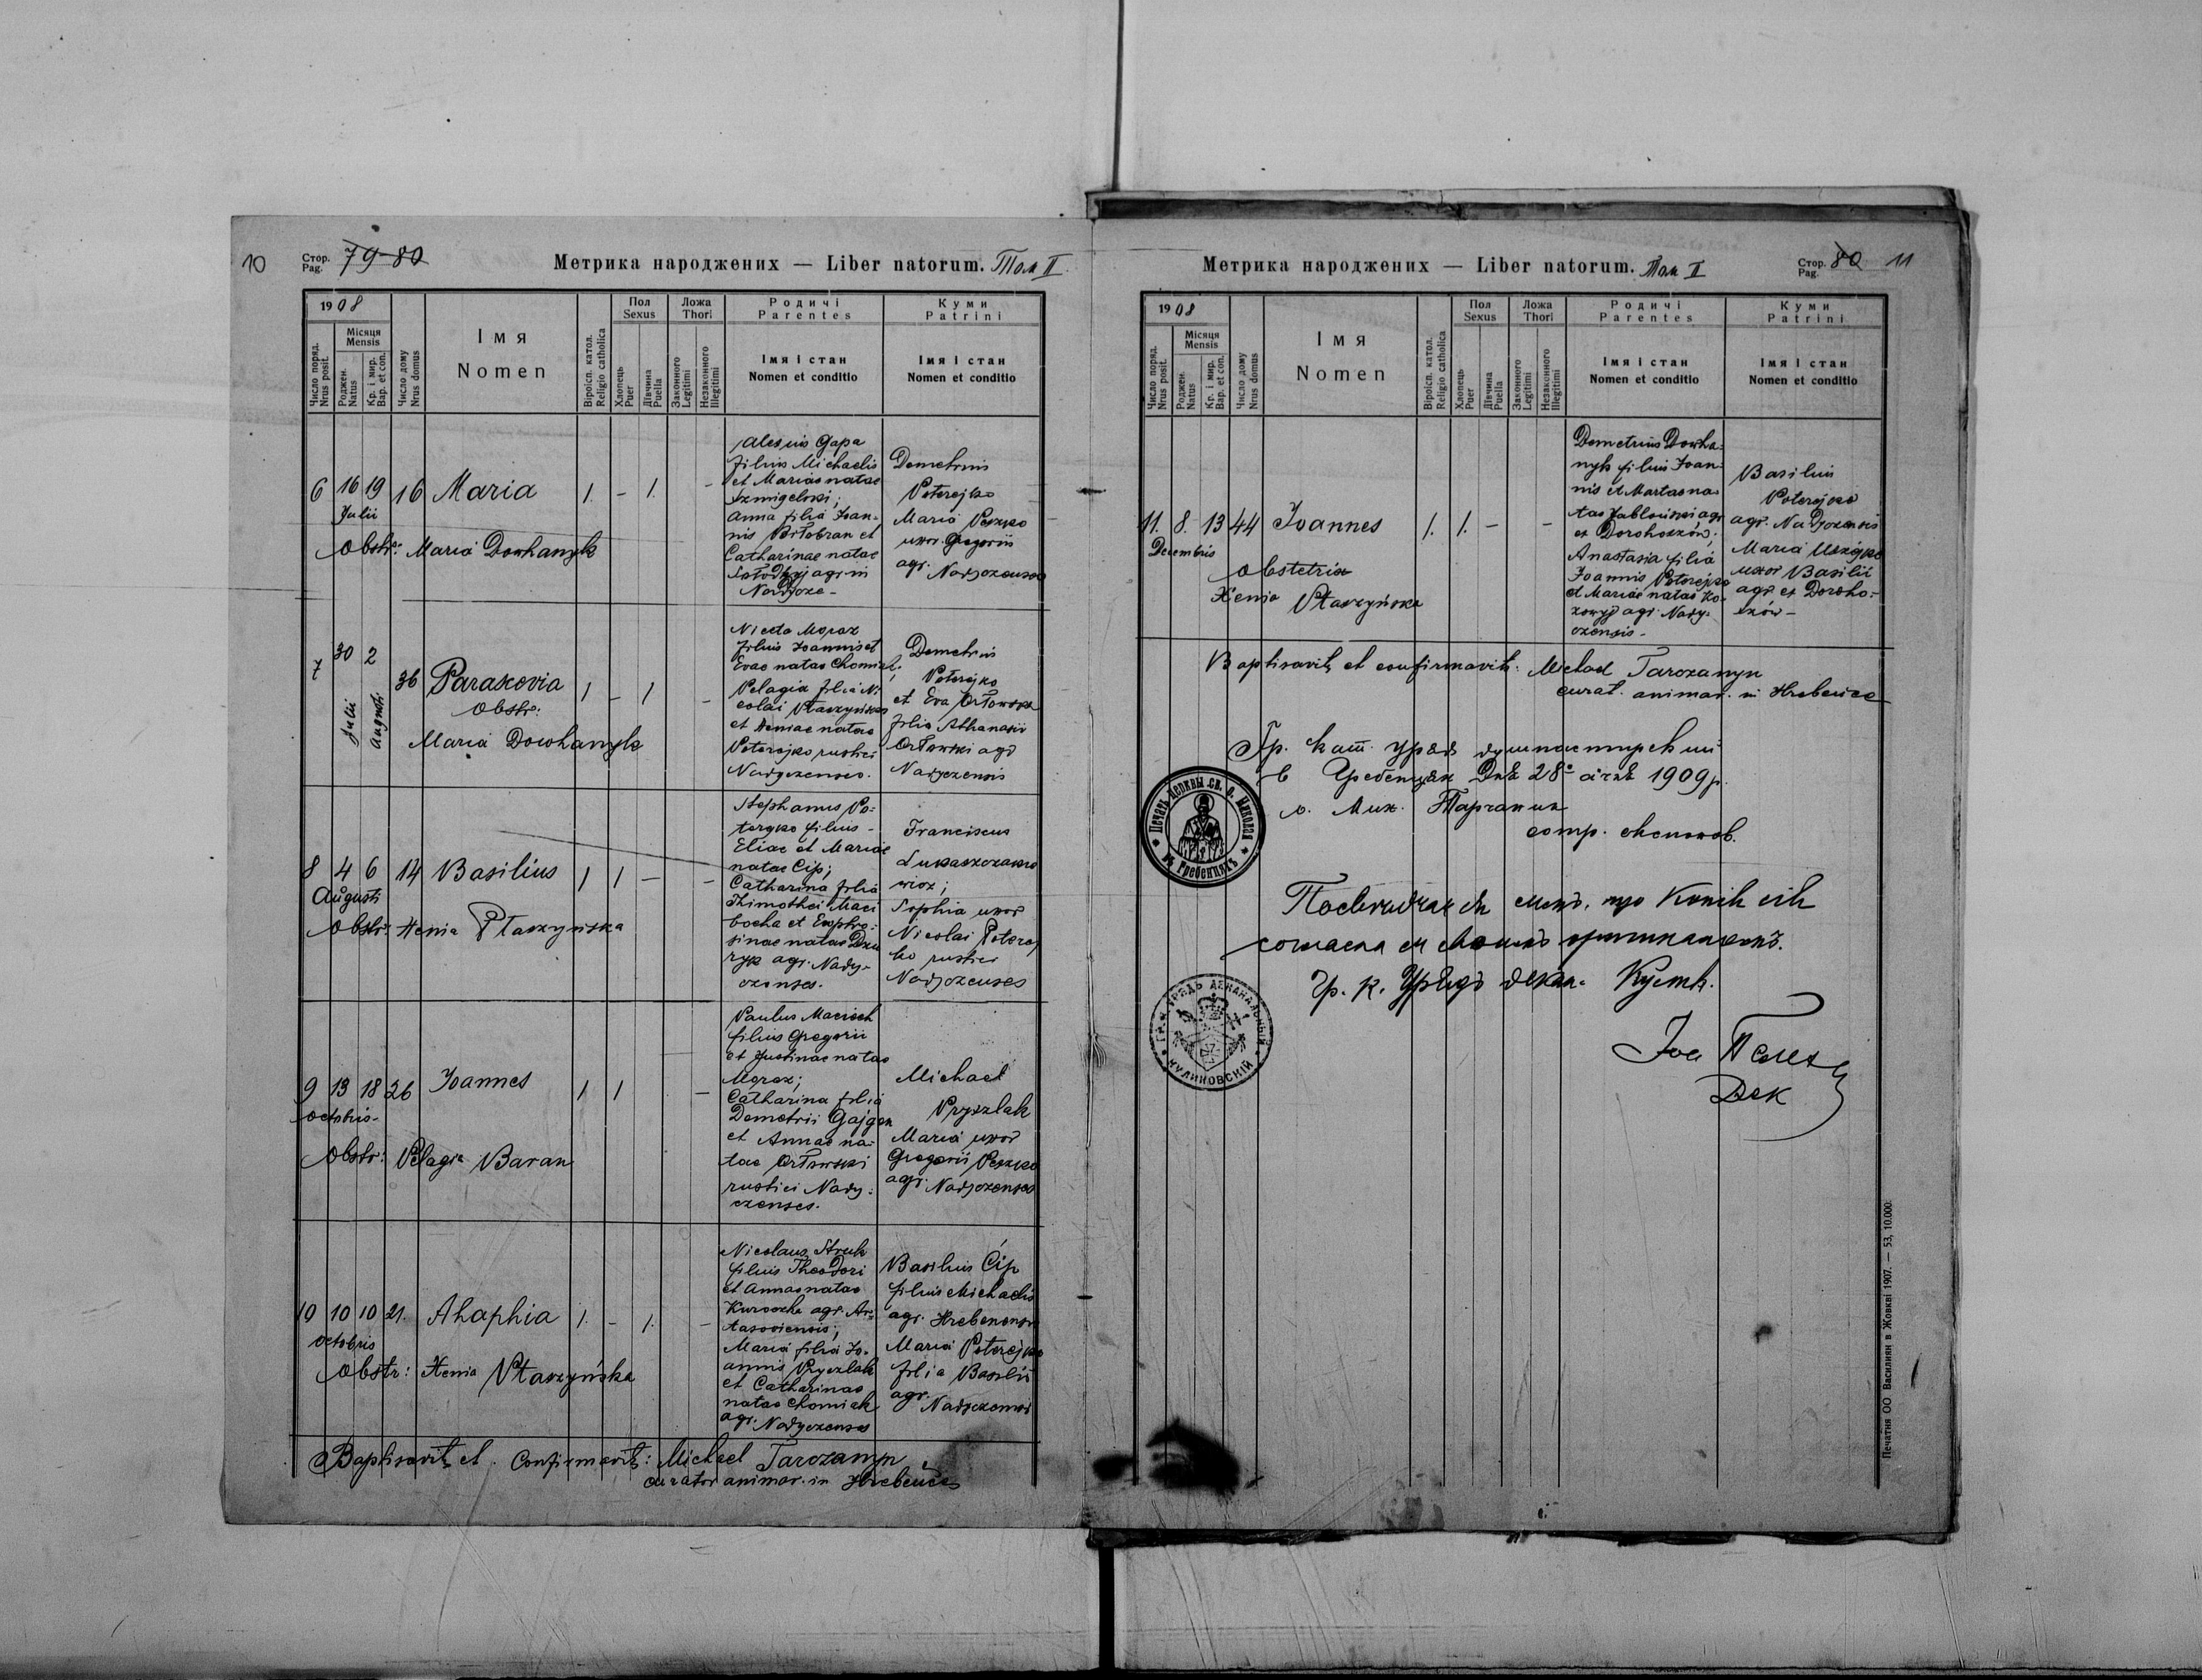 10
Стор. Pag. 79-80
Метрика народжених — Liber natorum. Том II
1908
Число поряд. Nrus posit.
Місяця Mensis
Роджен. Natus
Кр. і мир. Bap. et con.
Число дому Nrus domus
Імя Nomen
Віроісп. катол. Religio catholica
Пол Sexus
Хлопець Puer
Дівчина Puella
Ложа Thori
Законного Legitimi
Незаконного Illegitimi
Родичі Parentes
Імя і стан Nomen et conditio
Куми Patrini
Імя і стан Nomen et conditio
6 16 19 16 Maria 1. - 1. -
Julii
Obstr: Maria Dowhanyk
Alexius Gapa
filius Michaelis
et Mariae natae
Szmigelski;
Anna filia Joan-
nis Portobran et
Catharinae natae
agr in
Nadycze -
Demetrius
Poterejko
Maria Peszko
uxor Gregorii
agr. Nadyczenses
7 30 2 36 Paraxevia 1 - 1 -
Julii Augusti
Obstr:
Maria Dowhanyk
Niceta Moroz
filius Joannis et
Evae natae Chomiak;
Pelagia filia Ni-
colai Ptaszyński
et Xeniae natae
Poterejko rustici
Nadyczenses.
Demetrius
Poterejko
et Eva Orłowska
filia Athanasii
Orłowski agr
Nadyczensis
8 4 6 14 Basilius 1 1 - -
Augusti
Obstr: Xenia Ptaszyńska
Stephanus Po-
terejko filius -
Eliae et Mariae
natae Cip;
Catharina filia
Thimothei Maci
bocha et Euphro-
sinae natae Dzu
ryk agr. Nady-
czenses.
Franciscus
wicz;
Sophia uxor
Nicolai Poterej
ko rustici
Nadyczenses
9 13 18 26 Joannes 1 1 -
Octobris -
Obstr: Pelagia Baran
Paulus Macioch
filius Gregorii
et Justinae natae
Moroz;
Catharina filia
Demetrii Gajgen
et Annae na-
tae Orłowski
rustici Nady-
czenses.
Michael
Pryszlak
Maria uxor
Gregorii Peszko
agr. Nadyczenses
10 10 10 21. Ahaphia 1. - 1. -
Octobris
Obstr: Xenia Ptaszyńska
Nicolaus Struk
filius Theodori
et Annae natae
Kuroczka agr. Ar-
tasoviensis;
Maria filia Jo-
annis Pryszlak
et Catharinae
natae Chomiak
agr. Nadyczenses
Basilius Cip
filius Michaelis
agr. Hrebenensis
Maria Poterejko
filia Basilii
agr.
Nadyczensis
Baptisavit et Confirmavit: Michael Tarczanyn
curator animar. in Hrebeńce
Метрика народжених — Liber natorum. Том II
Стор. Pag. 80 11
1908
Число поряд. Nrus posit.
Місяця Mensis
Роджен. Natus
Кр. і мир. Bap. et con.
Число дому Nrus domus
Імя Nomen
Віроісп. катол. Religio catholica
Пол Sexus
Хлопець Puer
Дівчина Puella
Ложа Thori
Законного Legitimi
Незаконного Illegitimi
Родичі Parentes
Імя і стан Nomen et conditio
Куми Patrini
Імя і стан Nomen et conditio
11. 8. 13 44 Joannes 1. 1. - -
Decembris
Obstetrix
Xenia Ptaszyńska
Demetrius Dowha-
nyk filius Joan-
nis et Martae na-
tae Jabłoński agr
ex Dorohoszów;
Anastasia filia
Joannis Poterejko
et Mariae natae Ko-
zowyj agr. Nady-
czensis -
Basilius
Poterejko
agr. Nadyczensis
Maria
uxor Basilii
agr ex Doroho-
szów -
Baptisavit et confirmavit: Michael Tarczanyn
curat. animar. in Hrebeńce
Гр. кат. уряд душпастирский
в Гребенцях Дня 28 1909 р.
о. Мих. Тарчанин
сотр.
Печать Церквы св. о. Николая въ Гребенцяхъ
согласна съ оригиналомъ.
Гр. к. Урядъ декан.
Гр. к. Урядъ деканальный Куликовскій
Дек
Печатня ОО Василиян в Жовкві 1907. — 53, 10.000.